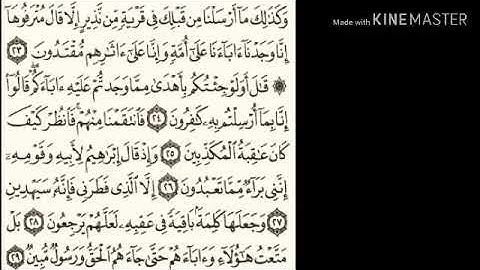 وَكَذَٰلِكَ مَآ أَرْسَلْنَا مِن قَبْلِكَ فِى قَرْيَةٍ مِّن نَّذِيرٍ إِلَّا قَالَ مُتْرَفُوهَآ
إِنَّا وَجَدْنَآ ءَابَآءَنَا عَلَىٰٓ أُمَّةٍ وَإِنَّا عَلَىٰٓ ءَاثَـٰرِهِم مُّقْتَدُونَ ٢٣
۞ قَـٰلَ أَوَلَوْ جِئْتُكُم بِأَهْدَىٰ مِمَّا وَجَدتُّمْ عَلَيْهِ ءَابَآءَكُمْ ۖ قَالُوٓا۟
إِنَّا بِمَآ أُرْسِلْتُم بِهِۦ كَـٰفِرُونَ ٢٤ فَٱنتَقَمْنَا مِنْهُمْ ۖ فَٱنظُرْ كَيْفَ
كَانَ عَـٰقِبَةُ ٱلْمُكَذِّبِينَ ٢٥ وَإِذْ قَالَ إِبْرَٰهِيمُ لِأَبِيهِ وَقَوْمِهِۦٓ
إِنَّنِى بَرَآءٌ مِّمَّا تَعْبُدُونَ ٢٦ إِلَّا ٱلَّذِى فَطَرَنِى فَإِنَّهُۥ سَيَهْدِينِ
٢٧ وَجَعَلَهَا كَلِمَةًۢ بَاقِيَةً فِى عَقِبِهِۦ لَعَلَّهُمْ يَرْجِعُونَ ٢٨ بَلْ
مَتَّعْتُ هَـٰٓؤُلَآءِ وَءَابَآءَهُمْ حَتَّىٰ جَآءَهُمُ ٱلْحَقُّ وَرَسُولٌ مُّبِينٌ ٢٩
Made with KINEMASTER